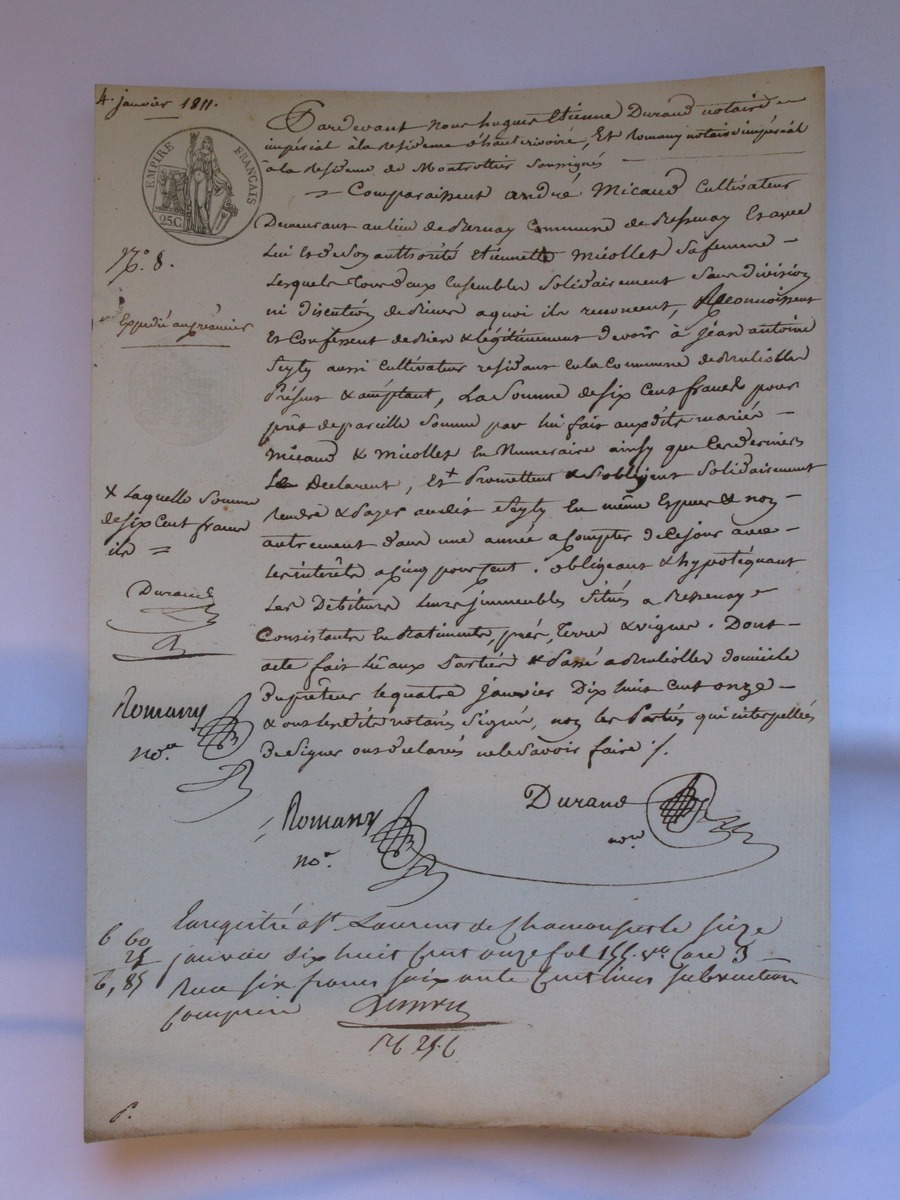 4. janvier 1811.
EMPIRE FRANÇAIS
25C
N.º 8.
Expedié au créancier
Pardevant nous hugues Etienne Durand notaire
impérial à la residence d'hauterivoire, Et Romany notaire impérial
à la Residence de Montrottier soussignés
= Comparaissent andré Micaud Cultivateur
Demeurant au lieu de Commune de Et avec
lui Et de son authorité Etiennette Micollet sa femme -
Lesquels tous deux Ensembles solidairement sans division
ni discution de biens a quoi ils renoncent, Reconnoissent
Et Confessent de bien & légitimement devoir à Jéan antoine
aussi Cultivateur residant En la Commune de
Présent & acceptant, La Somme de six Cent francs pour
prêt de pareille Somme par lui fait aux dits mariés -
micaud & micollet En Numeraire ainsy que Ces derniers
Le Declarent, Et + Promettent & s'obligent solidairement
Rendre & Payer audit En même Espèces & non -
autrement dans une année a Compter de Ce jour avec -
Les intérêts a Cinq pour Cent. obligeant & hypotéquant
Les Débiteurs Leurs immeubles Situés a
Consistants En Batiments, prés, Terres & vignes. Dont -
acte fait Lû aux Parties & Passé a domicile
du prêteur le quatre Janvier Dix huit Cent onze -
& ont lesdits notaires Signé, non les Parties qui interpellées
de Signer ont déclarés ne le Savoir faire /.
+ Laquelle Somme
de six Cent francs
ils =
Durand
Romany
no.re
Romany
no.re
Durand
no.re
6 60
25
6,85
Enregistré a St. Laurent de Chamousset le seize
janvier dix huit Cent onze fol 155. vo. Case 3
Reçu six francs soixante Centimes subvention
Comprise